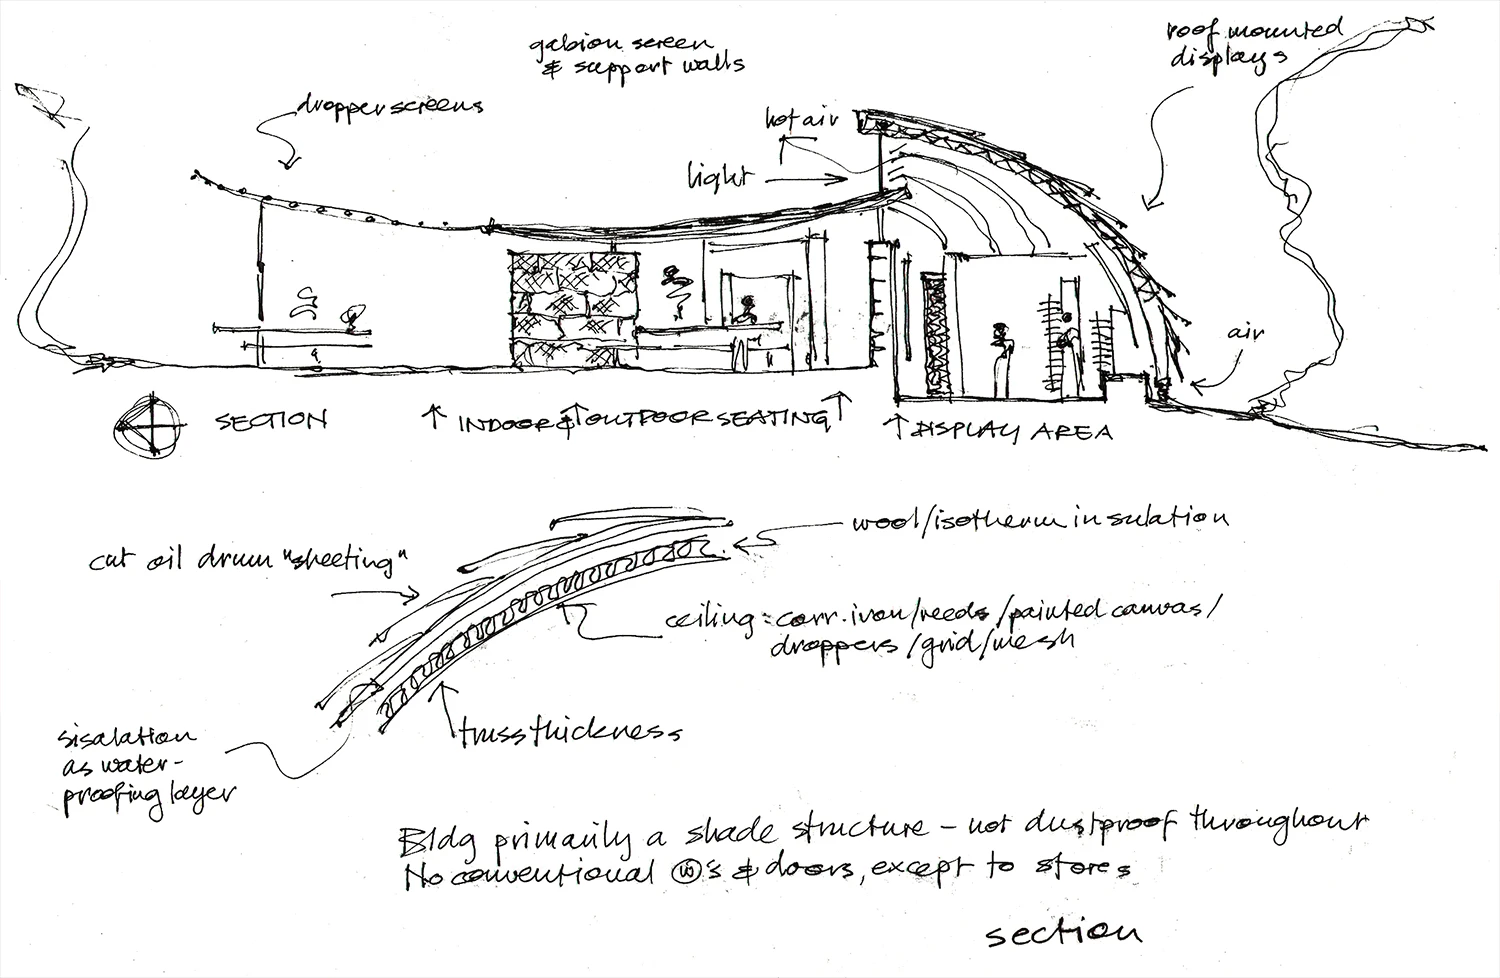 gabion screen
& support walls
roof mounted
displays
dropper screens
hot air
light
air
SECTION
INDOOR & OUTDOOR SEATING
DISPLAY AREA
cut oil drum "sheeting"
wool/isotherm insulation
ceiling: corr. iron/reeds/painted canvas/
droppers/grid/mesh
truss thickness
sisalation
as water-
proofing layer
Bldg primarily a shade structure - not dustproof throughout
No conventional 's & doors, except to stores
section